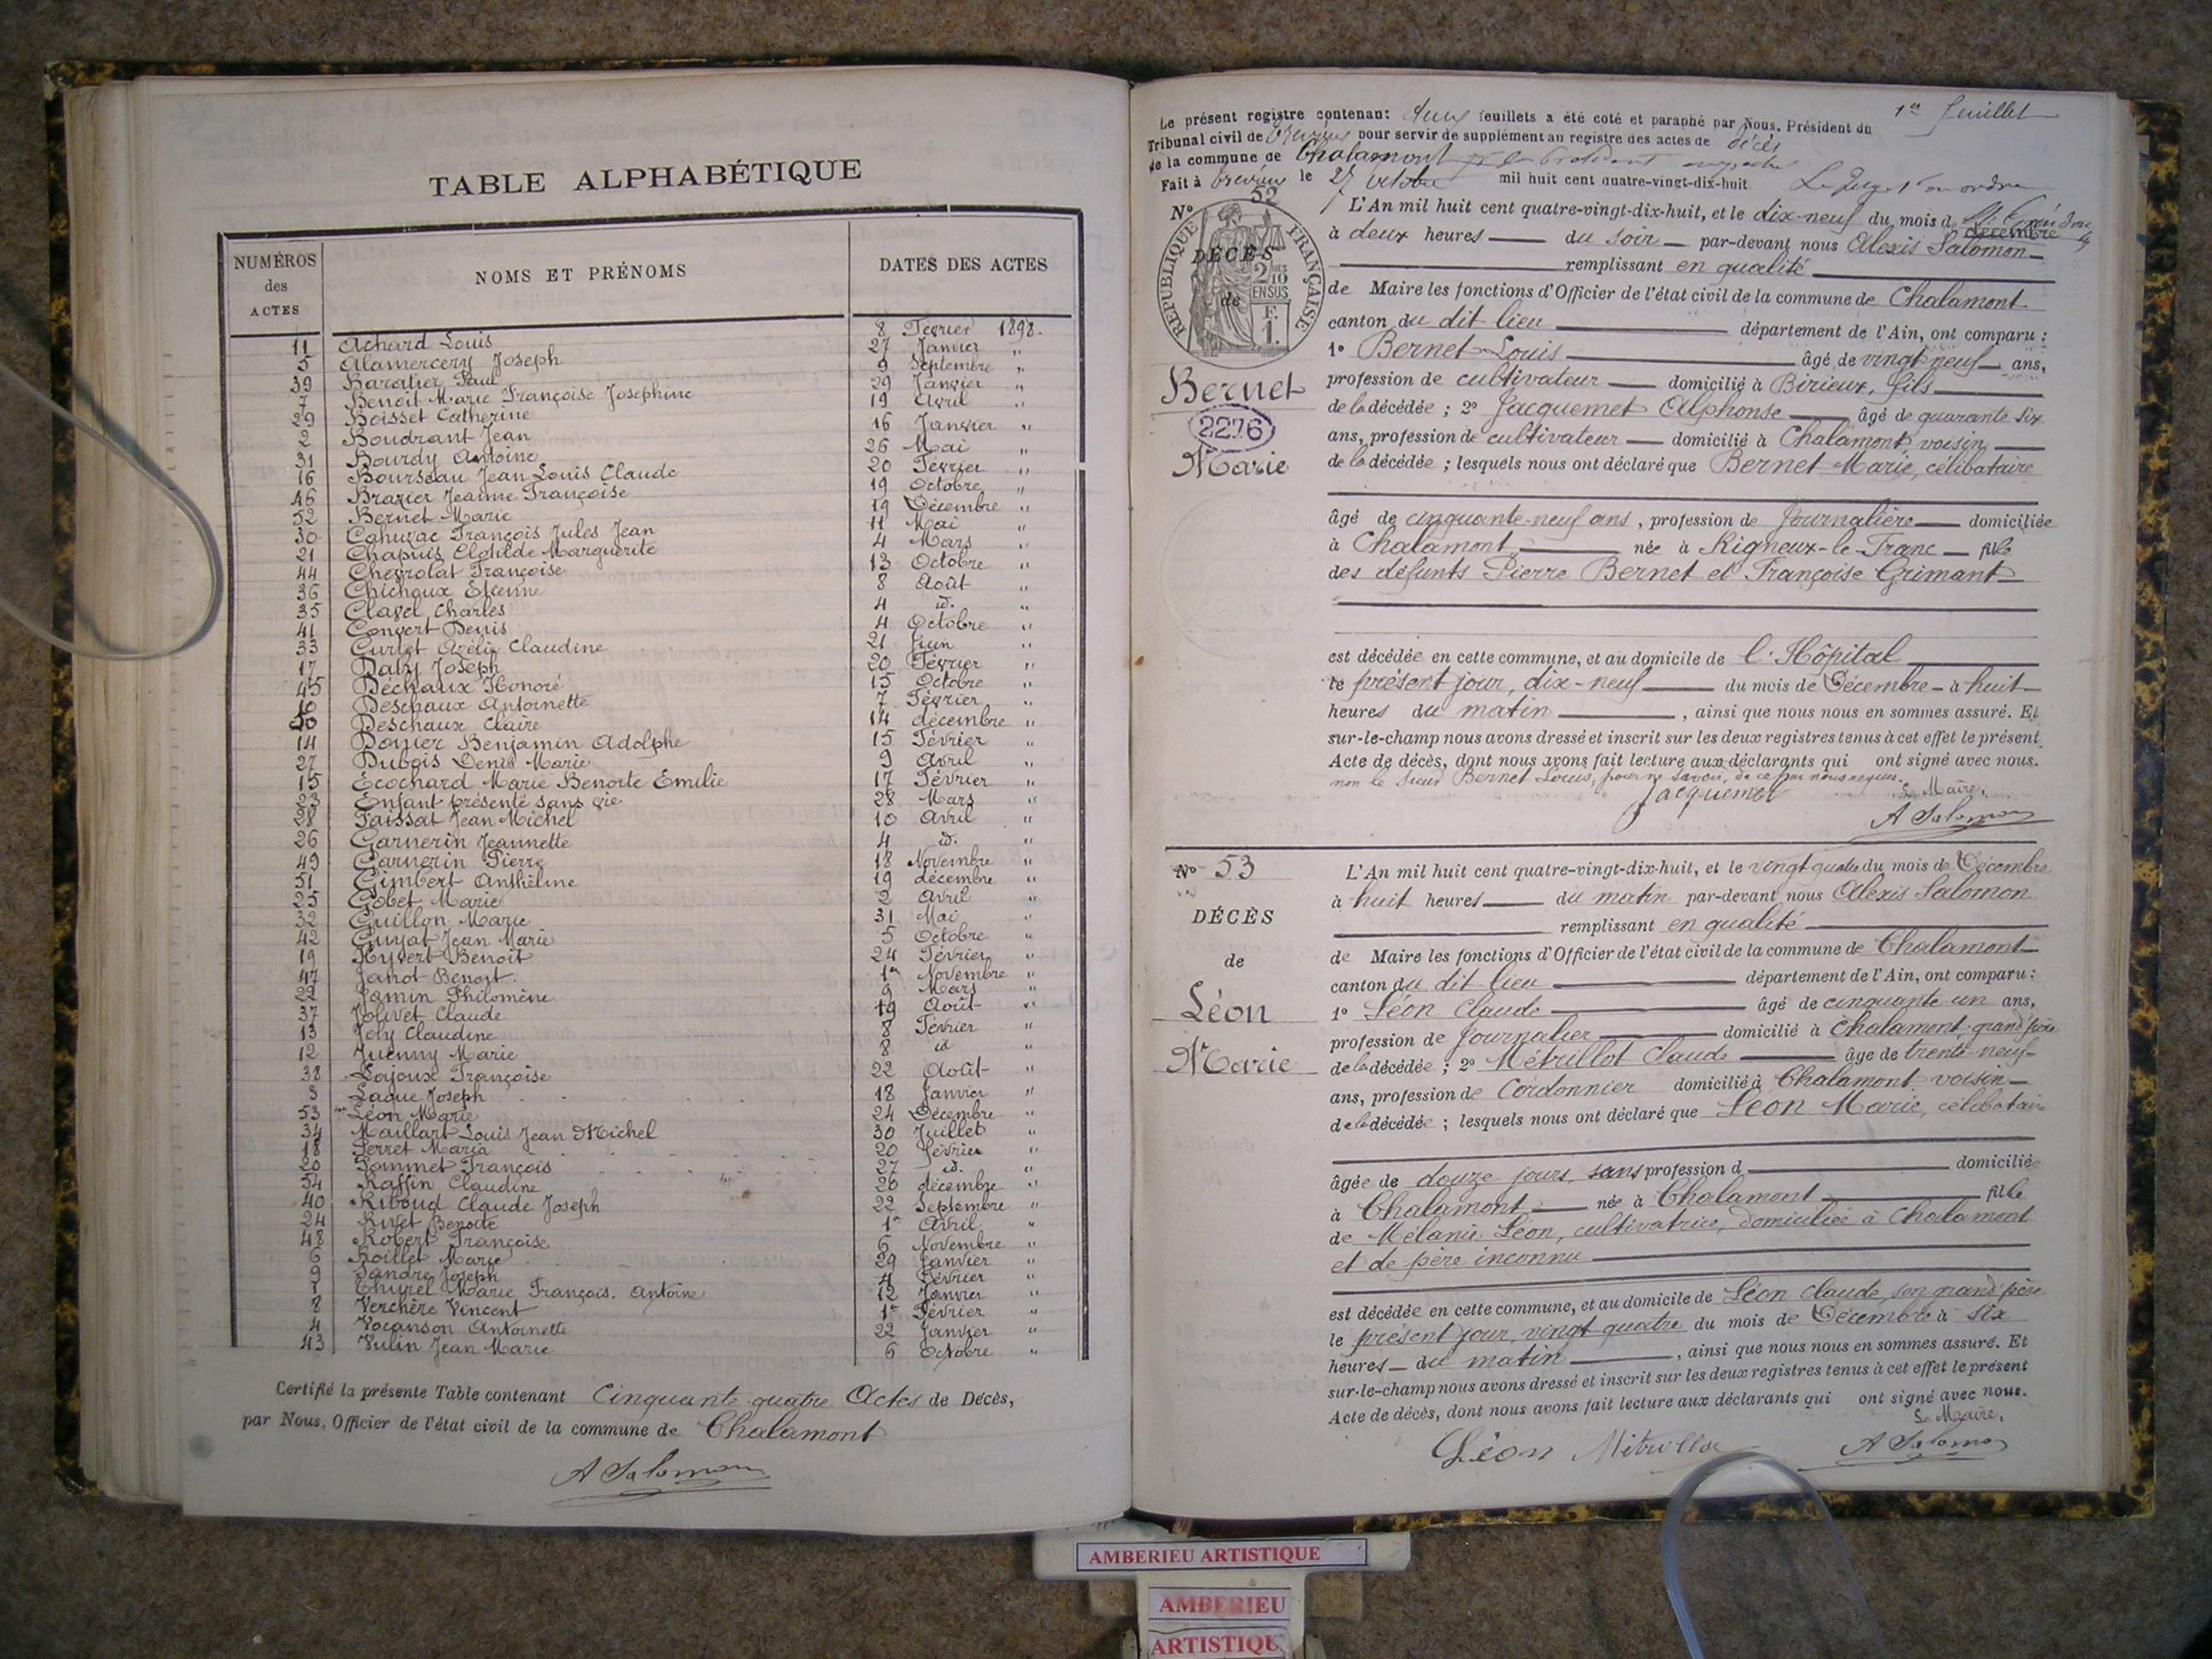 TABLE ALPHABÉTIQUE
NUMÉROS des ACTES
NOMS ET PRÉNOMS
DATES DES ACTES
11 Achard Louis 8 Février 1898.
5 Alamercery Joseph 27 Janvier "
39 Baratier Paul 9 Septembre "
7 Benoit Marie Françoise Josephine 29 Janvier "
29 Boisset Catherine 19 Avril "
2 Boudrant Jean 16 Janvier "
31 Bourdy Antoine 26 Mai "
16 Bourseau Jean Louis Claude 20 Février "
46 Brazier Jeanne Françoise 19 Octobre "
52 Bernet Marie 19 Décembre "
30 Cahuzac François Jules Jean 11 Mai "
21 Chapuis Clotilde Marguerite 4 Mars "
44 Chevrolat Françoise 13 Octobre "
36 Chichoux Etienne 8 Août "
35 Clavel Charles 4 id. "
41 Convert Denis 4 Octobre "
33 Curlet Azélie Claudine 21 Juin "
17 Dally Joseph 20 Février "
45 Déchaux Honoré 15 Octobre "
10 Deschaux Antoinette 7 Février "
50 Deschaux Claire 14 décembre "
14 Donier Benjamin Adolphe 15 Février "
27 Dubois Denis Marie 9 Avril "
15 Ecochard Marie Benoite Emilie 17 Février "
23 Enfant présenté sans vie 28 Mars "
28 Faissat Jean Michel 10 Avril "
26 Garnerin Jeannette 4 id. "
49 Garnerin Pierre 18 Novembre "
51 Gimbert Anthelme 19 décembre "
25 Gobet Marie 2 Avril "
32 Guillon Marie 31 Mai "
42 Guyat Jean Marie 5 Octobre "
19 Hyvert Benoît 24 Février "
47 Janot Benoit 1er Novembre "
22 Jamin Philomène 9 Mars "
37 Jolivet Claude 19 Août "
13 Joly Claudine 8 Février "
12 Juenny Marie 8 id "
38 Lajoux Françoise 22 Août "
3 Laque Joseph 18 Janvier "
53 Léon Marie 24 Décembre "
34 Maillart Louis Jean Michel 30 Juillet "
18 Perret Maria 20 février "
20 Pommet François 27 id. "
54 Raffin Claudine 26 décembre "
40 Riboud Claude Joseph 22 Septembre "
24 Rivet Benoite 1er Avril "
48 Robert Françoise 6 Novembre "
6 Roillet Marie 29 Janvier "
9 Sandre Joseph 4 Février "
1 Thurel Marie François. Antoine 12 Janvier "
8 Verchère Vincent 1er Février "
4 Vocanson Antoinette 22 Janvier "
43 Vulin Jean Marie 6 Octobre "
Certifié la présente Table contenant Cinquante quatre Actes de Décès,
par Nous, Officier de l'état civil de la commune de Chalamont
A Salomon
1er feuillet
Le présent registre contenant deux feuillets a été coté et paraphé par Nous, Président du
Tribunal civil de Trévoux pour servir de supplément au registre des actes de décès
de la commune de Chalamont
Fait à Trévoux le 27 octobre mil huit cent quatre-vingt-dix-huit Le Juge
N° 52
RÉPUBLIQUE FRANÇAISE
DÉCÈS
de
Bernet
2276
Marie
L'An mil huit cent quatre-vingt-dix-huit, et le dix-neuf du mois de décembre
à deux heures du soir par-devant nous Alexis Salomon
remplissant en qualité
de Maire les fonctions d'Officier de l'état civil de la commune de Chalamont
canton du dit lieu département de l'Ain, ont comparu :
1° Bernet Louis âgé de vingt neuf ans,
profession de cultivateur domicilié à Birieux, fils
de la décédée ; 2° Jacquemet Alphonse âgé de quarante six
ans, profession de cultivateur domicilié à Chalamont voisin
de la décédée ; lesquels nous ont déclaré que Bernet Marie, célibataire
âgé de cinquante-neuf ans, profession de Journalière domiciliée
à Chalamont, née à Rigneux-le-Franc fille
des défunts Pierre Bernet et Françoise Grimant
est décédée en cette commune, et au domicile de l'Hôpital
le présent jour, dix-neuf du mois de Décembre à huit
heures du matin, ainsi que nous nous en sommes assuré. Et
sur-le-champ nous avons dressé et inscrit sur les deux registres tenus à cet effet le présent
Acte de décès, dont nous avons fait lecture aux déclarants qui ont signé avec nous.
non le sieur Bernet Louis, pour ne savoir, de ce par nous requis.
Jacquemet
Le Maire,
A Salomon
N° 53
DÉCÈS
de
Léon
Marie
L'An mil huit cent quatre-vingt-dix-huit, et le vingt quatre du mois de Décembre
à huit heures du matin par-devant nous Alexis Salomon
remplissant en qualité
de Maire les fonctions d'Officier de l'état civil de la commune de Chalamont
canton du dit lieu département de l'Ain, ont comparu :
1° Léon Claude âgé de cinquante un ans,
profession de Journalier domicilié à Chalamont grand père
de la décédée ; 2° Métrillot Claude âgé de trente-neuf
ans, profession de Cordonnier domicilié à Chalamont voisin
de la décédée ; lesquels nous ont déclaré que Léon Marie, célibataire
âgée de douze jours, sans profession d domicilié
à Chalamont, née à Chalamont fille
de Mélanie Léon, cultivatrice, domiciliée à Chalamont
et de père inconnu
est décédée en cette commune, et au domicile de Léon Claude, son grand père
le présent jour, vingt quatre du mois de Décembre à six
heures du matin, ainsi que nous nous en sommes assuré. Et
sur-le-champ nous avons dressé et inscrit sur les deux registres tenus à cet effet le présent
Acte de décès, dont nous avons fait lecture aux déclarants qui ont signé avec nous.
Le Maire,
Léon Métrillot A Salomon
AMBERIEU ARTISTIQUE
AMBERIEU
ARTISTIQU